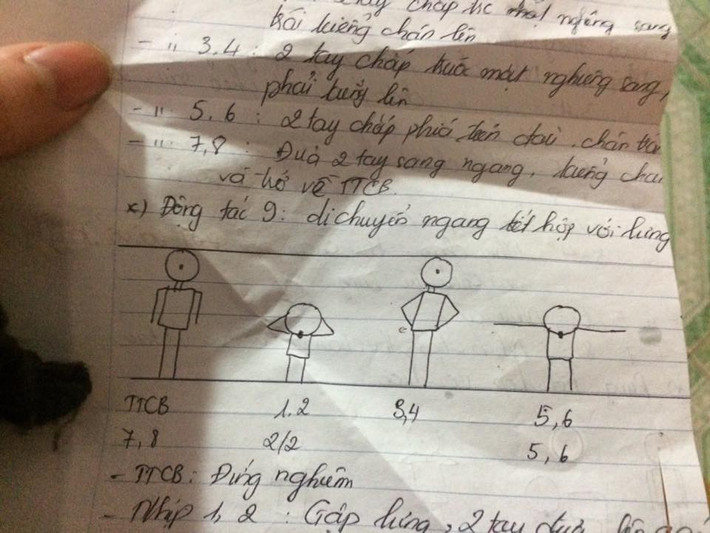 tay chấp trc mặt nghiêng sang
trái kiễng chân lên
- " 3,4 : 2 tay chấp trước mặt nghiêng sang,
phải kiễng lên
- " 5,6 : 2 tay chấp phía trên đầu, chân
- " 7,8 : Đưa 2 tay sang ngang, kiễng chân
và trở về TTCB.
x) Động tác 9: di chuyển ngang kết hợp với lưng
TTCB 1,2 3,4 5,6
7,8 2/2 5,6
- TTCB: Đứng nghiêm
- Nhịp 1, 2 : Gập lưng, 2 tay đưa lên